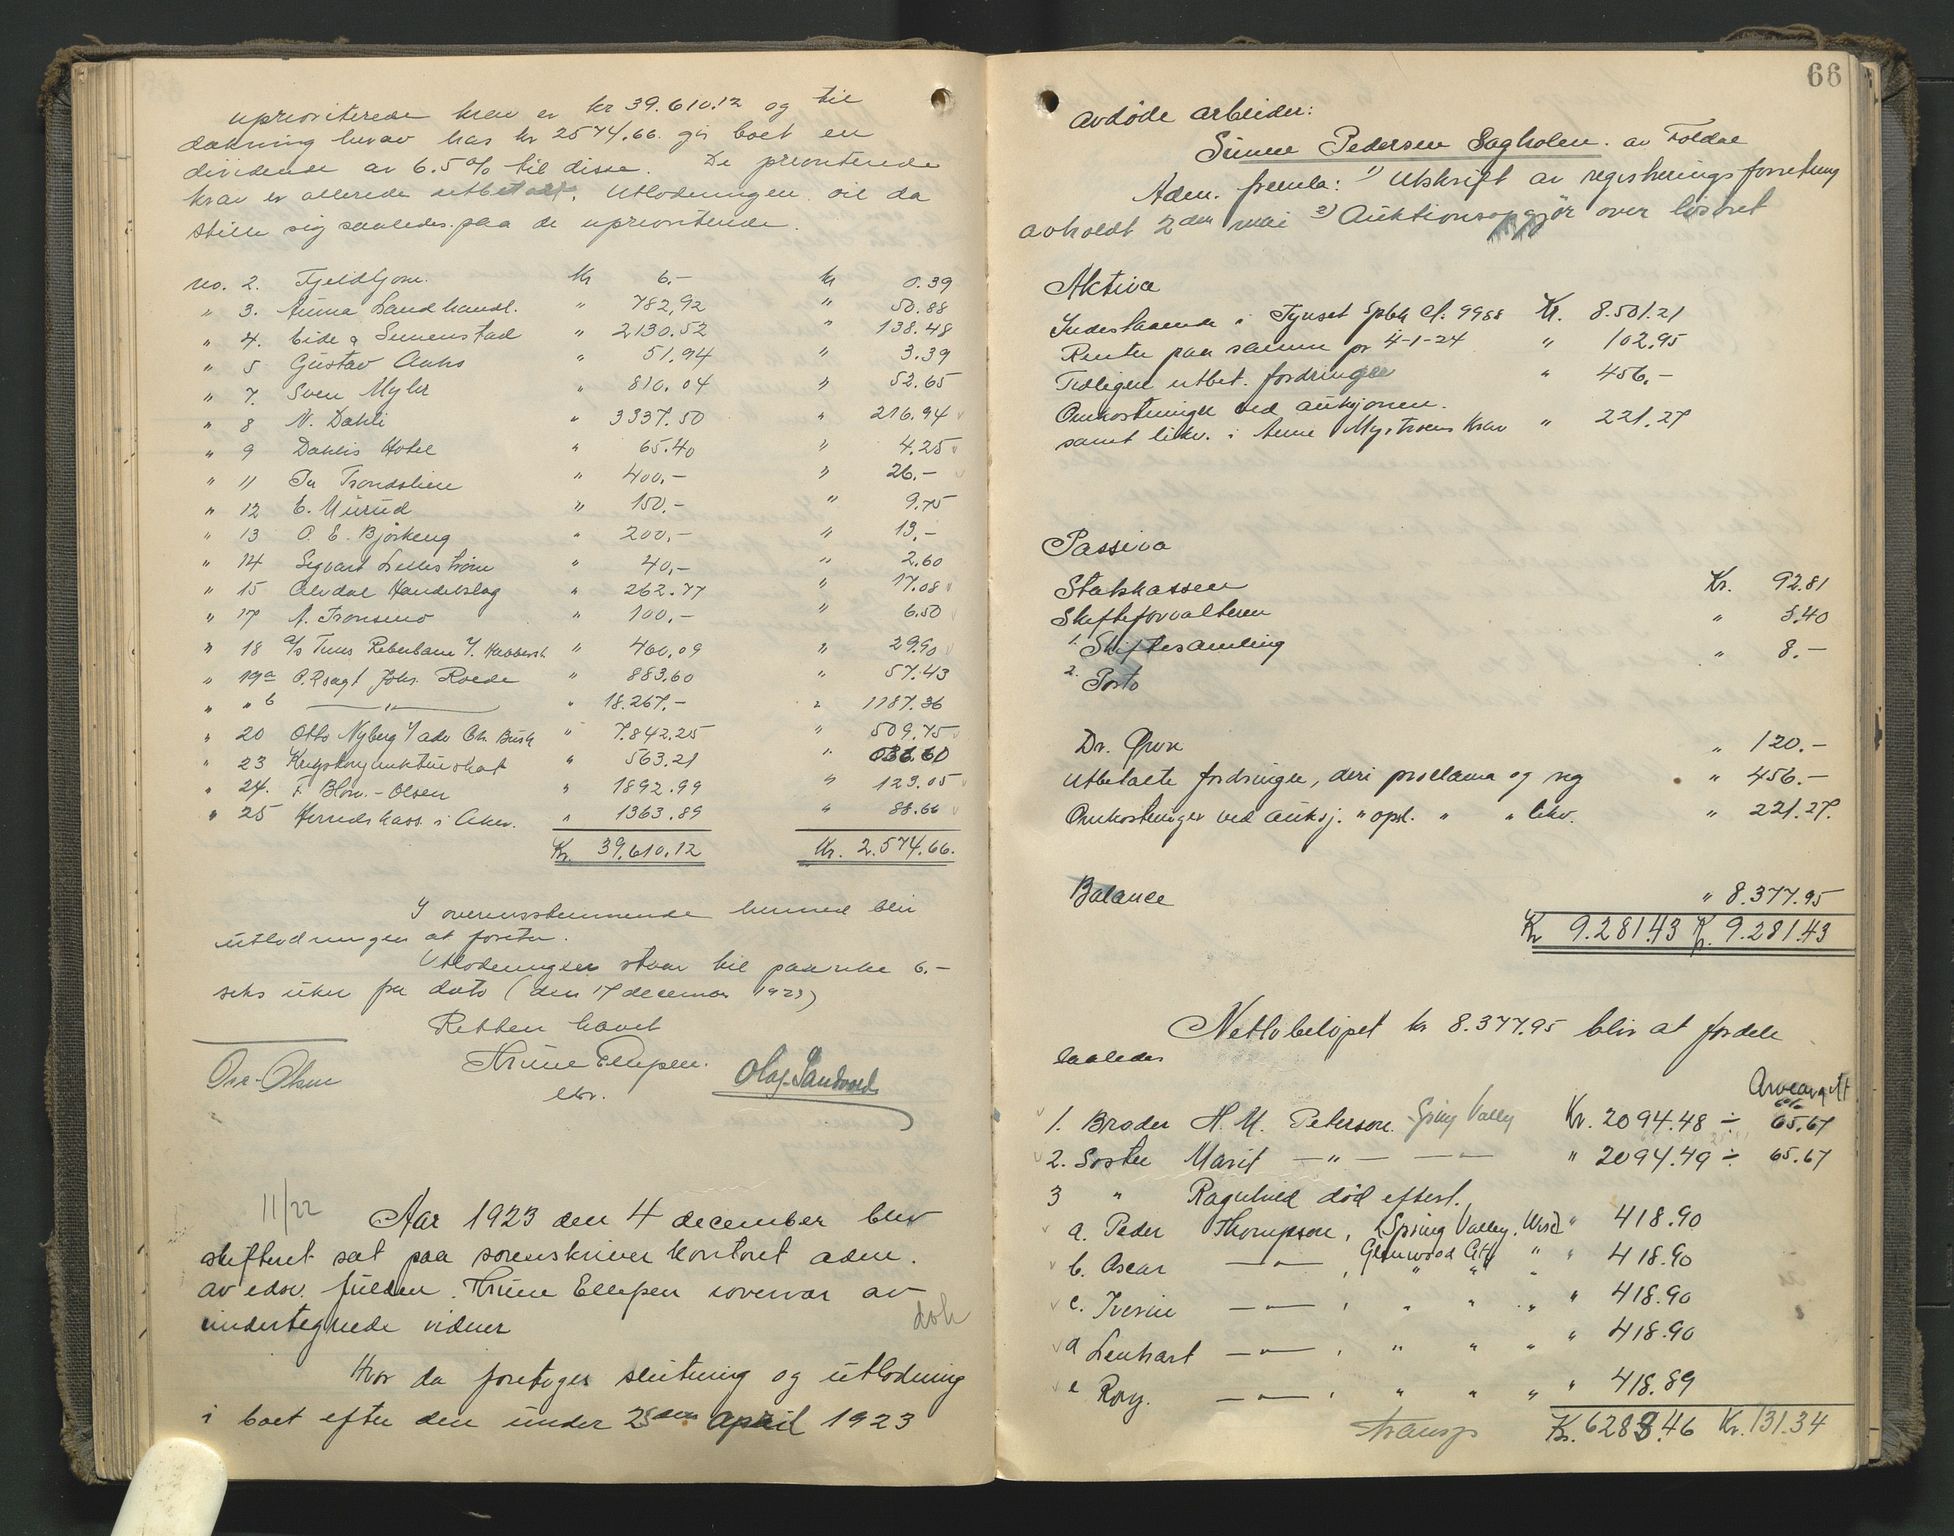 uprioriterede krav er kr 39.610.12 og til
dækning herav has kr 2574.66. gir boet en
dividende av 6.5% til disse. De prioriterede
krav er allerede utbetalt. Utlodningen vil da
stille sig saaledes paa de uprioriterede.
no. 2. Fjeldljom. Kr 6.- Kr 0.39
" 3. Auma Landhandl. " 782,92 " 50.88
" 4. Eide & Simenstad " 2130.52 " 138.48
" 5 Gustav Aahs " 51.94 " 3.39
" 7. Sven Myhr " 810.04 " 52.65
" 8 N. Dahli " 3337.50 " 216.94
" 9 Dahlis Hotel " 65.40 " 4.25
" 11 Pr Trondslien " 400.- " 26.-
" 12 E. Murud " 150.- " 9.75
" 13 O. E. Bjørkeng " 200,- " 13.-
" 14 Sigvart Lillestrøm " 40,- " 2.60
" 15 Alvdal Handelslag " 262.77 " 17.08
" 17 A. Tronsmo " 100,- " 6.50
" 18 a/s Tuns Reberbane v/ " 460,09 " 29.90
" 19a O.Rsagf. Johs. Roede " 883.60 " 57.43
" " b — " — " 18.267.- " 1187.36
" 20 Otto Nyberg v/ adv Chr. Bush " 7.842.25 " 509.75
" 23 Krigskonjunkturskat " 563.21 " 36.60
" 24. F. Blom.-Olsen " 1892.99 " 123.05
" 25 Herredskass. i Aker. " 1363.89 " 88.66
Kr. 39.610.12 Kr. 2.574.66.
I overensstemmende hermed blir
utlodningen at foreta.
Utlodningen staar til paaanke 6.-
seks uker fra dato (den 17 december 1923)
Retten hævet
Thrine Ellefsen.
Ove-Olsen ebr. Olaf Sandvold
11/22 Aar 1923 den 4 december blev
skifteret sat paa sorenskriverkontoret adm.
av edsv. fuldm. Thrine Ellefsen i overvær av
undertegnede vidner dok
Hvor da foretoges slutning og utlodning
i boet efter den under 25den april 1923
66
avdøde arbeider:
Simen Pedersen Sagholen. av Foldal
Adm. fremla: 1) Utskrift av registreringsforretning
avholdt 2den mai 2) Auktionsopgjør over løsøret
Aktiva
Indestaaende i Tynset Spbk cf. 9988 Kr. 8.501.21
Renter paa samme pr 4-1-24 " 102.95
Tidligere utbet. fordringer " 456.-
Omkostninger ved auksjonen.
samt likv. i Anne Mystroens Krav " 221.27
Passiva
Statskassen Kr. 92.81
Skifteforvalteren " 5.40
1. Skiftesamling " 8.-
2. Porto
Dr. Ørn " 120.-
Utbetalte fordringer, deri proclama og reg " 456.-
Omkostninger ved auksj. " opsl. " " likv. " 221.27.
Balance " 8.377.95
Kr 9.281.43 Kr. 9.281.43
Nettobeløpet kr 8.377.95 blir at fordele
saaledes
Arveavgift
6%
1. Broder H. M. Peterson. Spring Valley Kr. 2094.48 ÷ 65.67
2. Søster Marit — " — — — " 2094.49 ÷ 65.67
3 " Ragnhild død efterl.
a. Peder Thompson, Spring Valley. Wisc. " 418.90
b. Oscar — " — , Glenwood City " " 418.90
c. Iverine — " — , " " " " 418.90
d Lenhart — " — , " " " " 418.90
e Roy. — " — , " " " " 418.89
transp Kr. 6283.46 Kr. 131.34